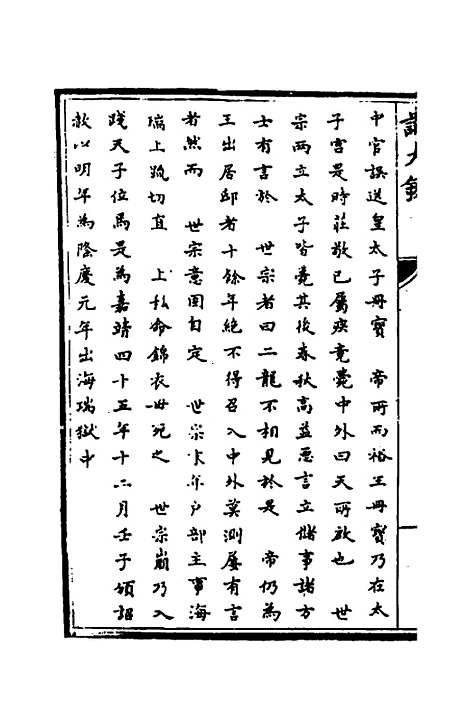 中官誤送皇太子冊寶　帝所而裕王冊寶乃在太
子宮是時莊敬已屬疾竟薨中外曰天所啟也　世
宗兩立太子皆薨其後春秋高益惡言立儲事諸方
士有言於　世宗者曰二龍不相見於是　帝仍為
王出居邸者十餘年絕不得召入中外莫測屢有言
者然而　世宗意固自定　世宗末年戶部主事海
瑞上疏切直　上私命錦衣毋死之　世宗崩乃入
踐天子位焉是為嘉靖四十五年十二月壬子頒詔
赦以明年為隆慶元年出海瑞獄中